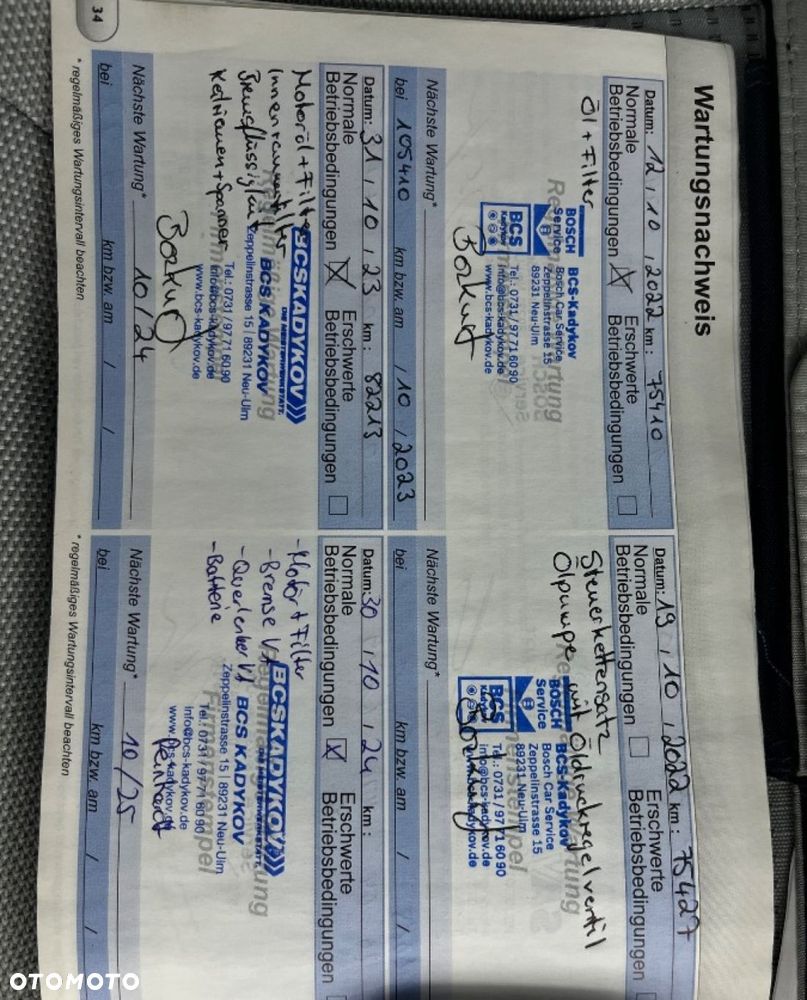 Wartungsnachweis
Datum: 12, 10, 2022 km: 75410
Normale Betriebsbedingungen ☒ Erschwerte Betriebsbedingungen ☐
Öl + Filter
BOSCH Service
BCS-Kadykov
Bosch Car Service
Zeppelinstrasse 15
89231 Neu-Ulm
BCS
Tel.: 0731 / 97 71 60 90
info@bcs-kadykov.de
www.bcs-kadykov.de
Nächste Wartung*
bei 105410 km bzw. am , 10, 2023
Datum: 31, 10, 23 km: 82213
Normale Betriebsbedingungen ☒ Erschwerte Betriebsbedingungen ☐
Motoröl + Filter
Innenraumfilter
Bremsflüssigkeit
Keilriemen + Spanner
BCSKADYKOV
DIE MEISTERWERKSTATT.
BCS KADYKOV
Zeppelinstrasse 15 | 89231 Neu-Ulm
Tel.: 0731 / 97 71 60 90
info@bcs-kadykov.de
www.bcs-kadykov.de
Nächste Wartung* 10/24
bei km bzw. am / /
* regelmäßiges Wartungsintervall beachten
34
Datum: 19, 10, 2022 km: 75427
Normale Betriebsbedingungen ☐ Erschwerte Betriebsbedingungen
Steuerkettensatz
Ölpumpe mit Öldruckregelventil
BOSCH Service
BCS-Kadykov
Bosch Car Service
Zeppelinstrasse 15
89231 Neu-Ulm
BCS
Tel.: 0731 / 97 71 60 90
info@bcs-kadykov.de
www.bcs-kadykov.de
Nächste Wartung*
bei km bzw. am / /
Datum: 30, 10, 24 km:
Normale Betriebsbedingungen ☒ Erschwerte Betriebsbedingungen
- Motor + Filter
- Bremse VA
- Querlenker VA
- Batterie
BCSKADYKOV
BCS KADYKOV
Zeppelinstrasse 15 | 89231 Neu-Ulm
Tel.: 0731 / 97 71 60 90
info@bcs-kadykov.de
www.bcs-kadykov.de
Nächste Wartung* 10/25
bei km bzw. am / /
* regelmäßiges Wartungsintervall beachten
OTOMOTO